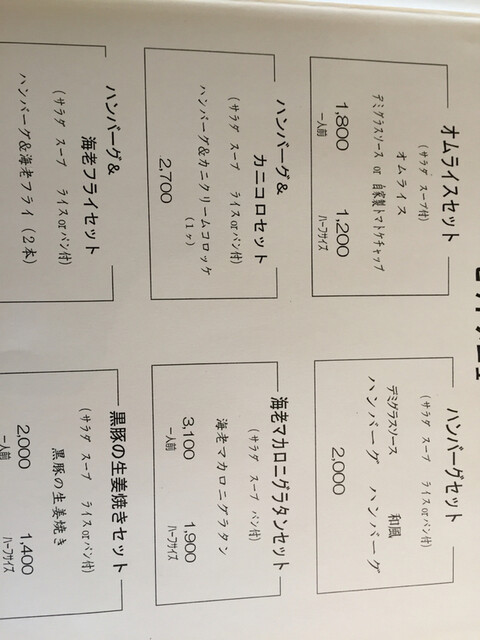 オムライスセット
(サラダ スープ付)
オムライス
デミグラスソース or 自家製トマトケチャップ
1,800 1,200
一人前 ハーフサイズ
ハンバーグセット
(サラダ スープ ライスorパン付)
デミグラスソース 和風
ハンバーグ ハンバーグ
2,000
ハンバーグ&
カニコロセット
(サラダ スープ ライスorパン付)
ハンバーグ&カニクリームコロッケ
(1ヶ)
2,700
海老マカロニグラタンセット
(サラダ スープ パン付)
海老マカロニグラタン
3,100 1,900
一人前 ハーフサイズ
ハンバーグ&
海老フライセット
(サラダ スープ ライスorパン付)
ハンバーグ&海老フライ(2本)
黒豚の生姜焼きセット
(サラダ スープ ライスorパン付)
黒豚の生姜焼き
2,000 1,400
一人前 ハーフサイズ